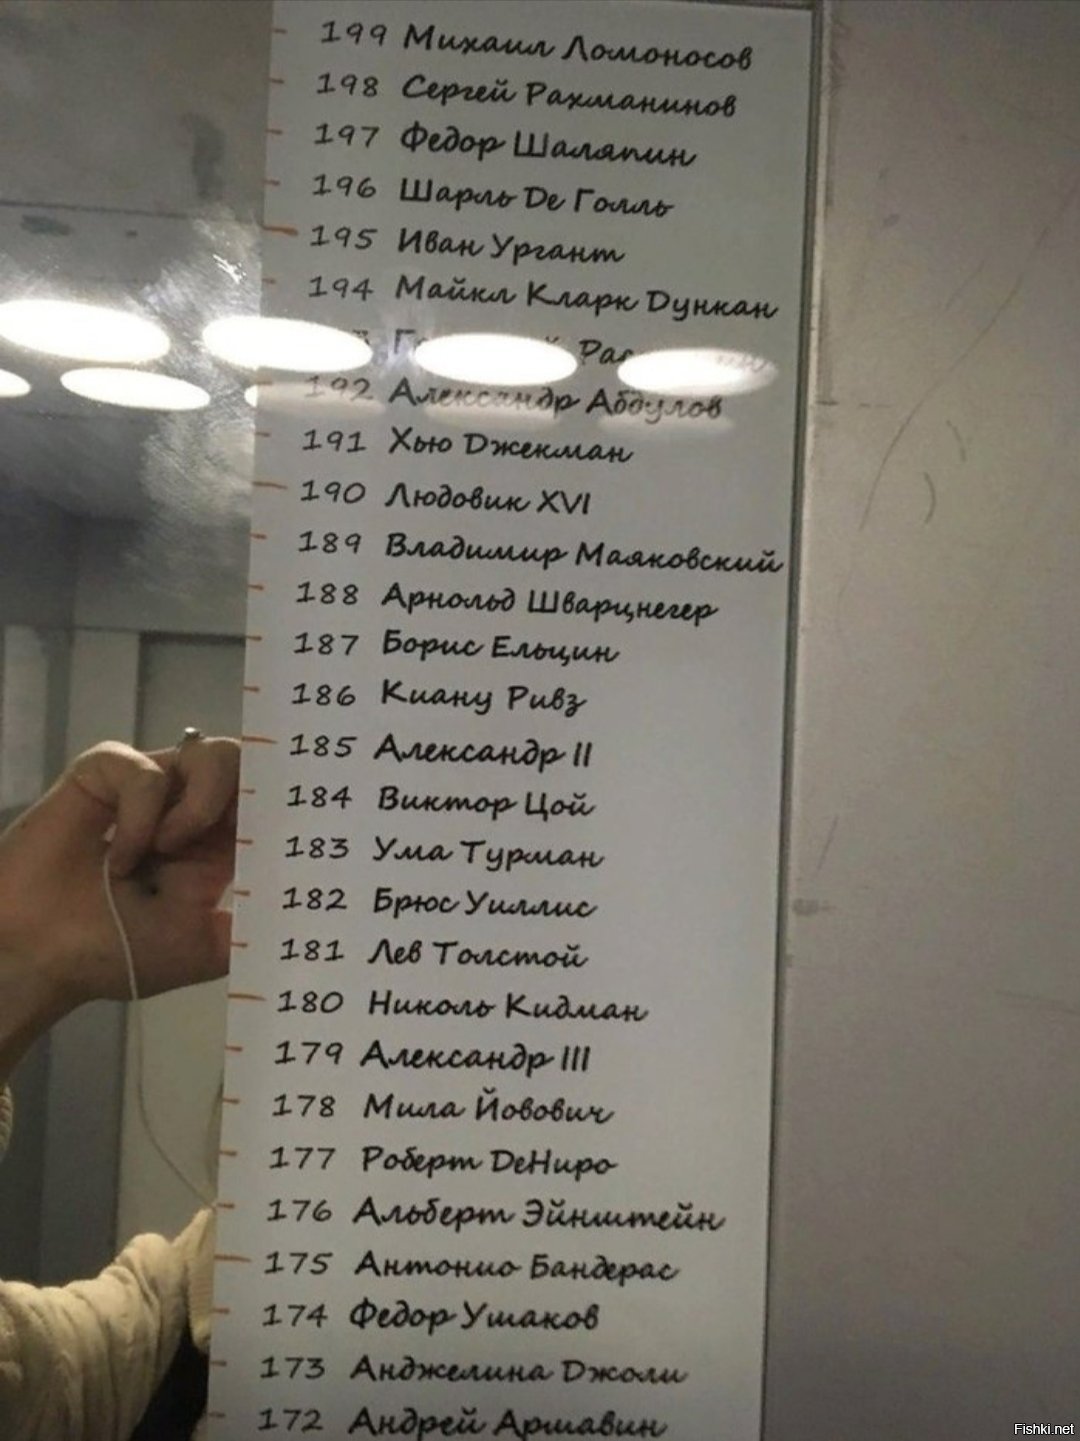 199 Михаил Ломоносов
198 Сергей Рахманинов
197 Федор Шаляпин
196 Шарль Де Голль
195 Иван Ургант
194 Майкл Кларк Дункан
192 Александр Абдулов
191 Хью Джекман
190 Людовик XVI
189 Владимир Маяковский
188 Арнольд Шварцнегер
187 Борис Ельцин
186 Киану Ривз
185 Александр II
184 Виктор Цой
183 Ума Турман
182 Брюс Уиллис
181 Лев Толстой
180 Николь Кидман
179 Александр III
178 Мила Йовович
177 Роберт ДеНиро
176 Альберт Эйнштейн
175 Антонио Бандерас
174 Федор Ушаков
173 Анджелина Джоли
172 Андрей Аршавин
Fishki.net